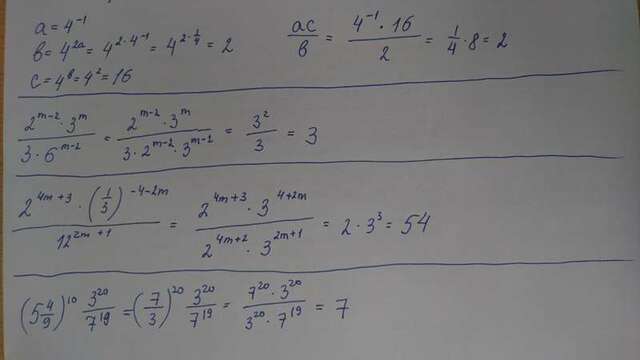 a = 4^{-1}
b = 4^{2a} = 4^{2·4^{-1}} = 4^{2·\frac{1}{4}} = 2
c = 4^{b} = 4^{2} = 16
\frac{ac}{b} = \frac{4^{-1}·16}{2} = \frac{1}{4}·8 = 2
\frac{2^{m-2}·3^{m}}{3·6^{m-2}} = \frac{2^{m-2}·3^{m}}{3·2^{m-2}·3^{m-2}} = \frac{3^{2}}{3} = 3
\frac{2^{4m+3}·(\frac{1}{3})^{-4-2m}}{12^{2m+1}} = \frac{2^{4m+3}·3^{4+2m}}{2^{4m+2}·3^{2m+1}} = 2·3^{3} = 54
(5\frac{4}{9})^{10} \frac{3^{20}}{7^{19}} = (\frac{7}{3})^{20} \frac{3^{20}}{7^{19}} = \frac{7^{20}·3^{20}}{3^{20}·7^{19}} = 7